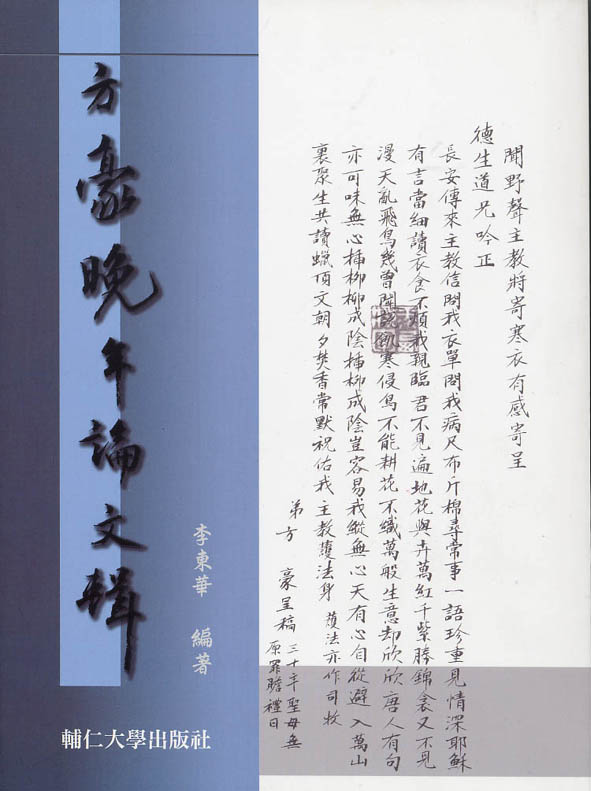 方豪晚年論文輯
李東華 編著
輔仁大學出版社
聞野聲主教將寄寒衣有感寄呈
德生道兄吟正
長安傳來主教信問我衣單問我病尺布斤棉尋常事一語珍重見情深耶穌
有言當細讀衣食不煩我親臨君不見遍地花與卉萬紅千紫勝錦衾又不見
漫天亂飛鳥幾曾開說飢寒侵鳥不能耕花不織萬般生意却欣欣唐人有句
亦可味無心插柳柳成陰插柳成陰豈容易我縱無心天有心自從避入萬山
裏眾生共讀蠟頂文朝夕焚香常默祝佑我主教護法身 護法亦作司牧
弟方 豪呈稿 三十年聖母無
原罪瞻禮日